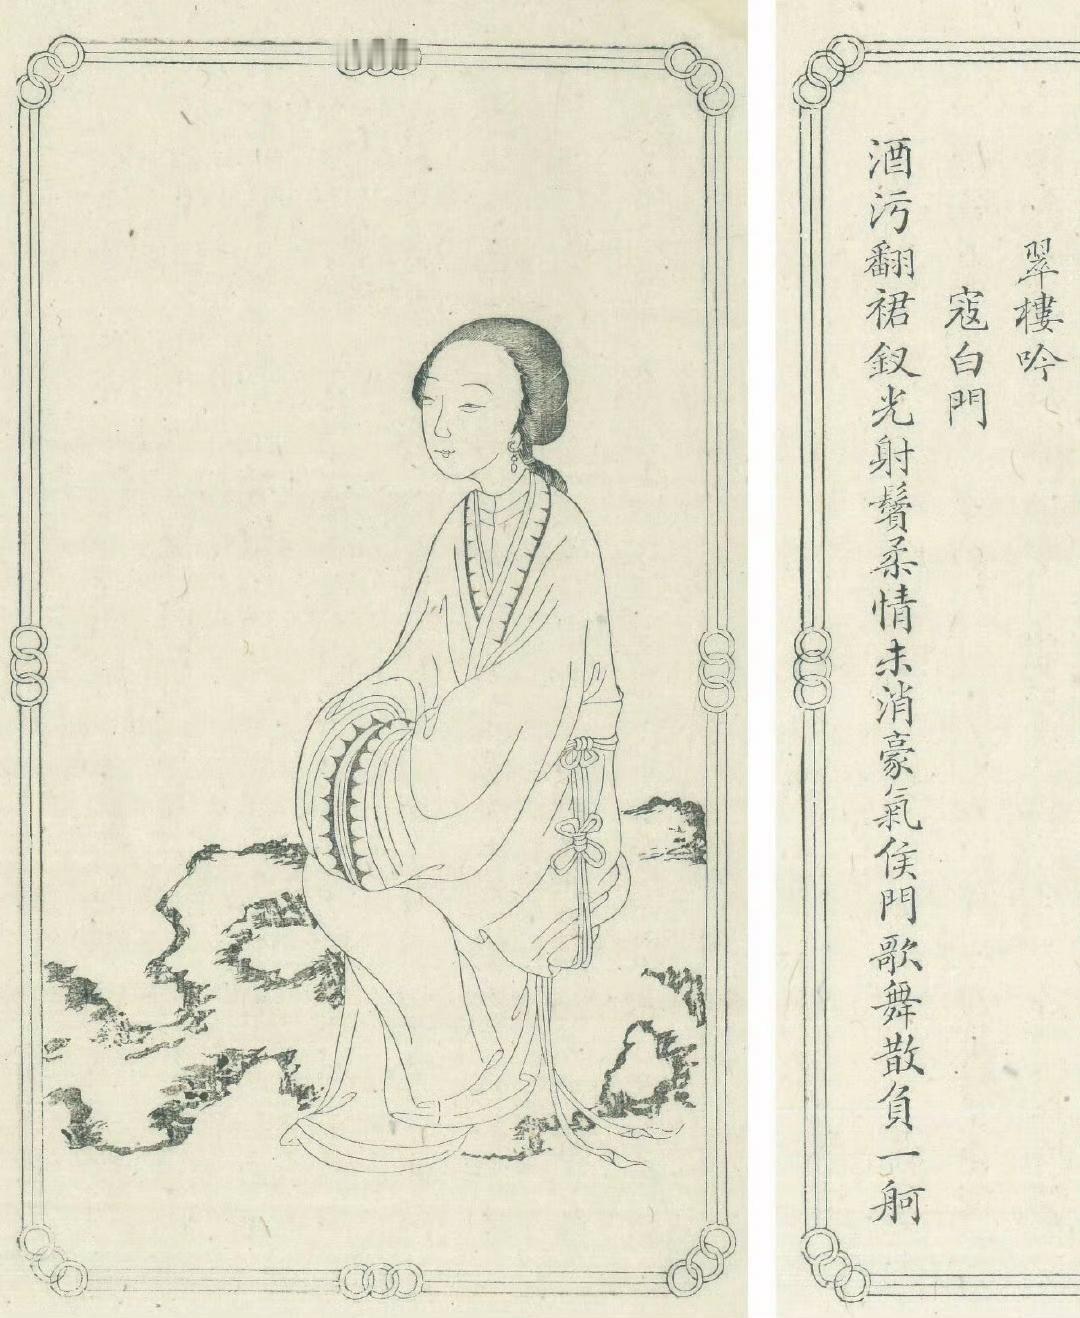 翠樓吟
寇白門
酒污翻裙釵光射鬢柔情未消豪氣侯門歌舞散負一舸